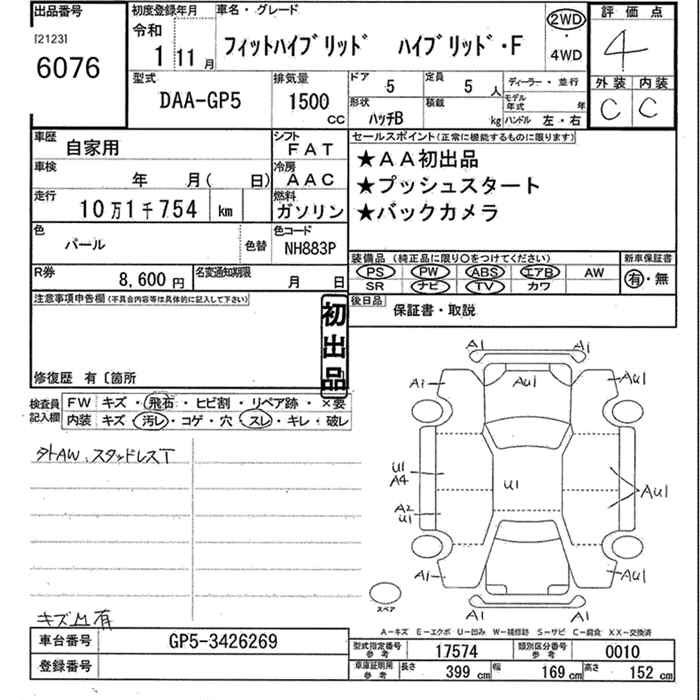 出品番号
[2123]
6076
初度登録年月
令和
1 11月
車名・グレード
フィットハイブリッド ハイブリッド・F
2WD
・
4WD
評価点
4
外装 内装
C C
型式
DAA-GP5
排気量
1500
CC
ドア 5
定員 5 人
形状 ハッチB
積載 kg
ディーラー・並行
モデル年式 年
ハンドル 左・右
車歴 自家用
シフト FAT
車検 年 月( 日)
冷房 AAC
走行 10万1千754 km
燃料 ガソリン
色 パール 色替
色コード NH883P
R券 8,600円
名変通知期限 月 日
セールスポイント(正常に機能するものに限ります)
★AA初出品
★プッシュスタート
★バックカメラ
装備品(純正品に限り○をつけてください)
PS PW ABS エアB AW
SR ナビ TV カワ
新車保証書
有・無
後日品 保証書・取説
注意事項申告欄(不具合内容等は具体的に記入して下さい)
初出品
修復歴 有〔箇所
検査員記入欄
FW キズ・飛石・ヒビ割・リペア跡・×要
内装 キズ・汚レ・コゲ・穴・スレ・キレ・破レ
外AW、スタッドレスT
キズ凹有
A1 A1
A1 AU1 AU1
U1
A4
U1
AU1
A2
U1
A1 AU1
A1 A1
スペア
A-キズ E-エクボ U-凹み W-補修跡 S-サビ C-腐食 XX-交換済
車台番号 GP5-3426269
登録番号
型式指定番号 参考 17574
類別区分番号 参考 0010
車庫証明用 参考 長さ 399 cm 幅 169 cm 高さ 152 cm